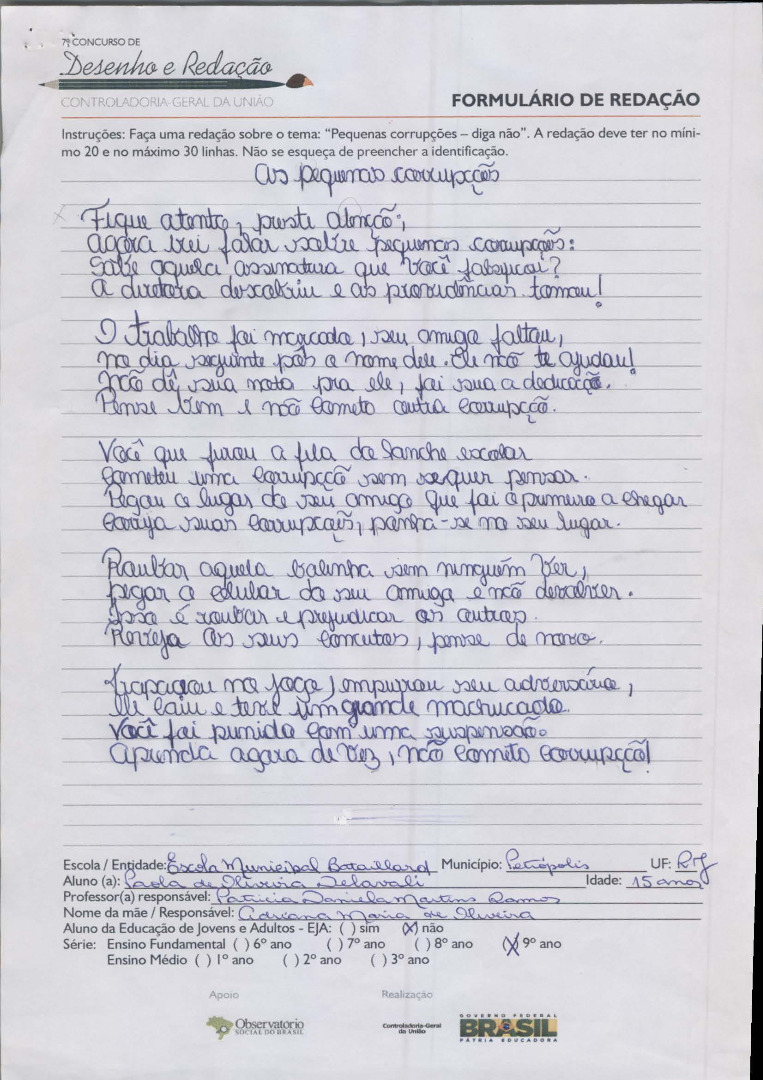 7º CONCURSO DE
Desenho e Redação
CONTROLADORIA-GERAL DA UNIÃO
FORMULÁRIO DE REDAÇÃO
Instruções: Faça uma redação sobre o tema: “Pequenas corrupções – diga não”. A redação deve ter no míni-
mo 20 e no máximo 30 linhas. Não se esqueça de preencher a identificação.
As pequenas corrupções
Fique atento, preste atenção;
Agora irei falar sobre pequenas corrupções:
Sabe aquela assinatura que você falsificou?
A diretora descobriu e as providências tomou!
O trabalho foi marcado, seu amigo faltou,
no dia seguinte pôs o nome dele. Ele não te ajudou!
Não dê sua nota pra ele, foi sua a dedicação.
Pense bem e não cometa outra corrupção.
Você que furou a fila do lanche escolar
cometeu uma corrupção sem sequer pensar.
Pegou o lugar do seu amigo que foi o primeiro a chegar
corrija suas corrupções, ponha-se no seu lugar.
Roubar aquela balinha sem ninguém ver,
pegar o celular do seu amigo e não devolver.
Isso é roubar e prejudicar os outros.
Reveja os seus conceitos, pense de novo.
Trapaceou no jogo, empurrou seu adversário,
ele caiu e teve um grande machucado.
Você foi punido com uma suspensão.
Aprenda agora de vez, não cometa corrupção!
Escola / Entidade: Escola Municipal Bataillard Município: Petrópolis UF: RJ
Aluno (a): Paola de Oliveira Delavali Idade: 15 anos
Professor(a) responsável: Patricia Daniela Martins Ramos
Nome da mãe / Responsável: Adriana Maria de Oliveira
Aluno da Educação de Jovens e Adultos - EJA: ( ) sim (X) não
Série: Ensino Fundamental ( ) 6º ano ( ) 7º ano ( ) 8º ano (X) 9º ano
Ensino Médio ( ) 1º ano ( ) 2º ano ( ) 3º ano
Apoio Realização
Observatório
SOCIAL DO BRASIL
Controladoria-Geral
da União
GOVERNO FEDERAL
BRASIL
PÁTRIA EDUCADORA